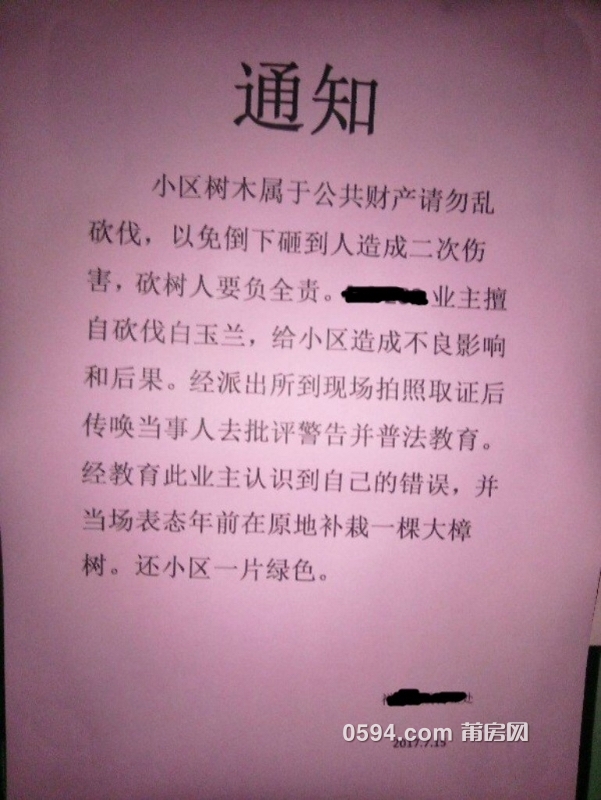 通知
小区树木属于公共财产请勿乱
砍伐，以免倒下砸到人造成二次伤
害，砍树人要负全责。业主擅
自砍伐白玉兰，给小区造成不良影响
和后果。经派出所到现场拍照取证后
传唤当事人去批评警告并普法教育。
经教育此业主认识到自己的错误，并
当场表态年前在原地补栽一棵大樟
树。还小区一片绿色。
处
0594.com 莆房网
2017.7.15